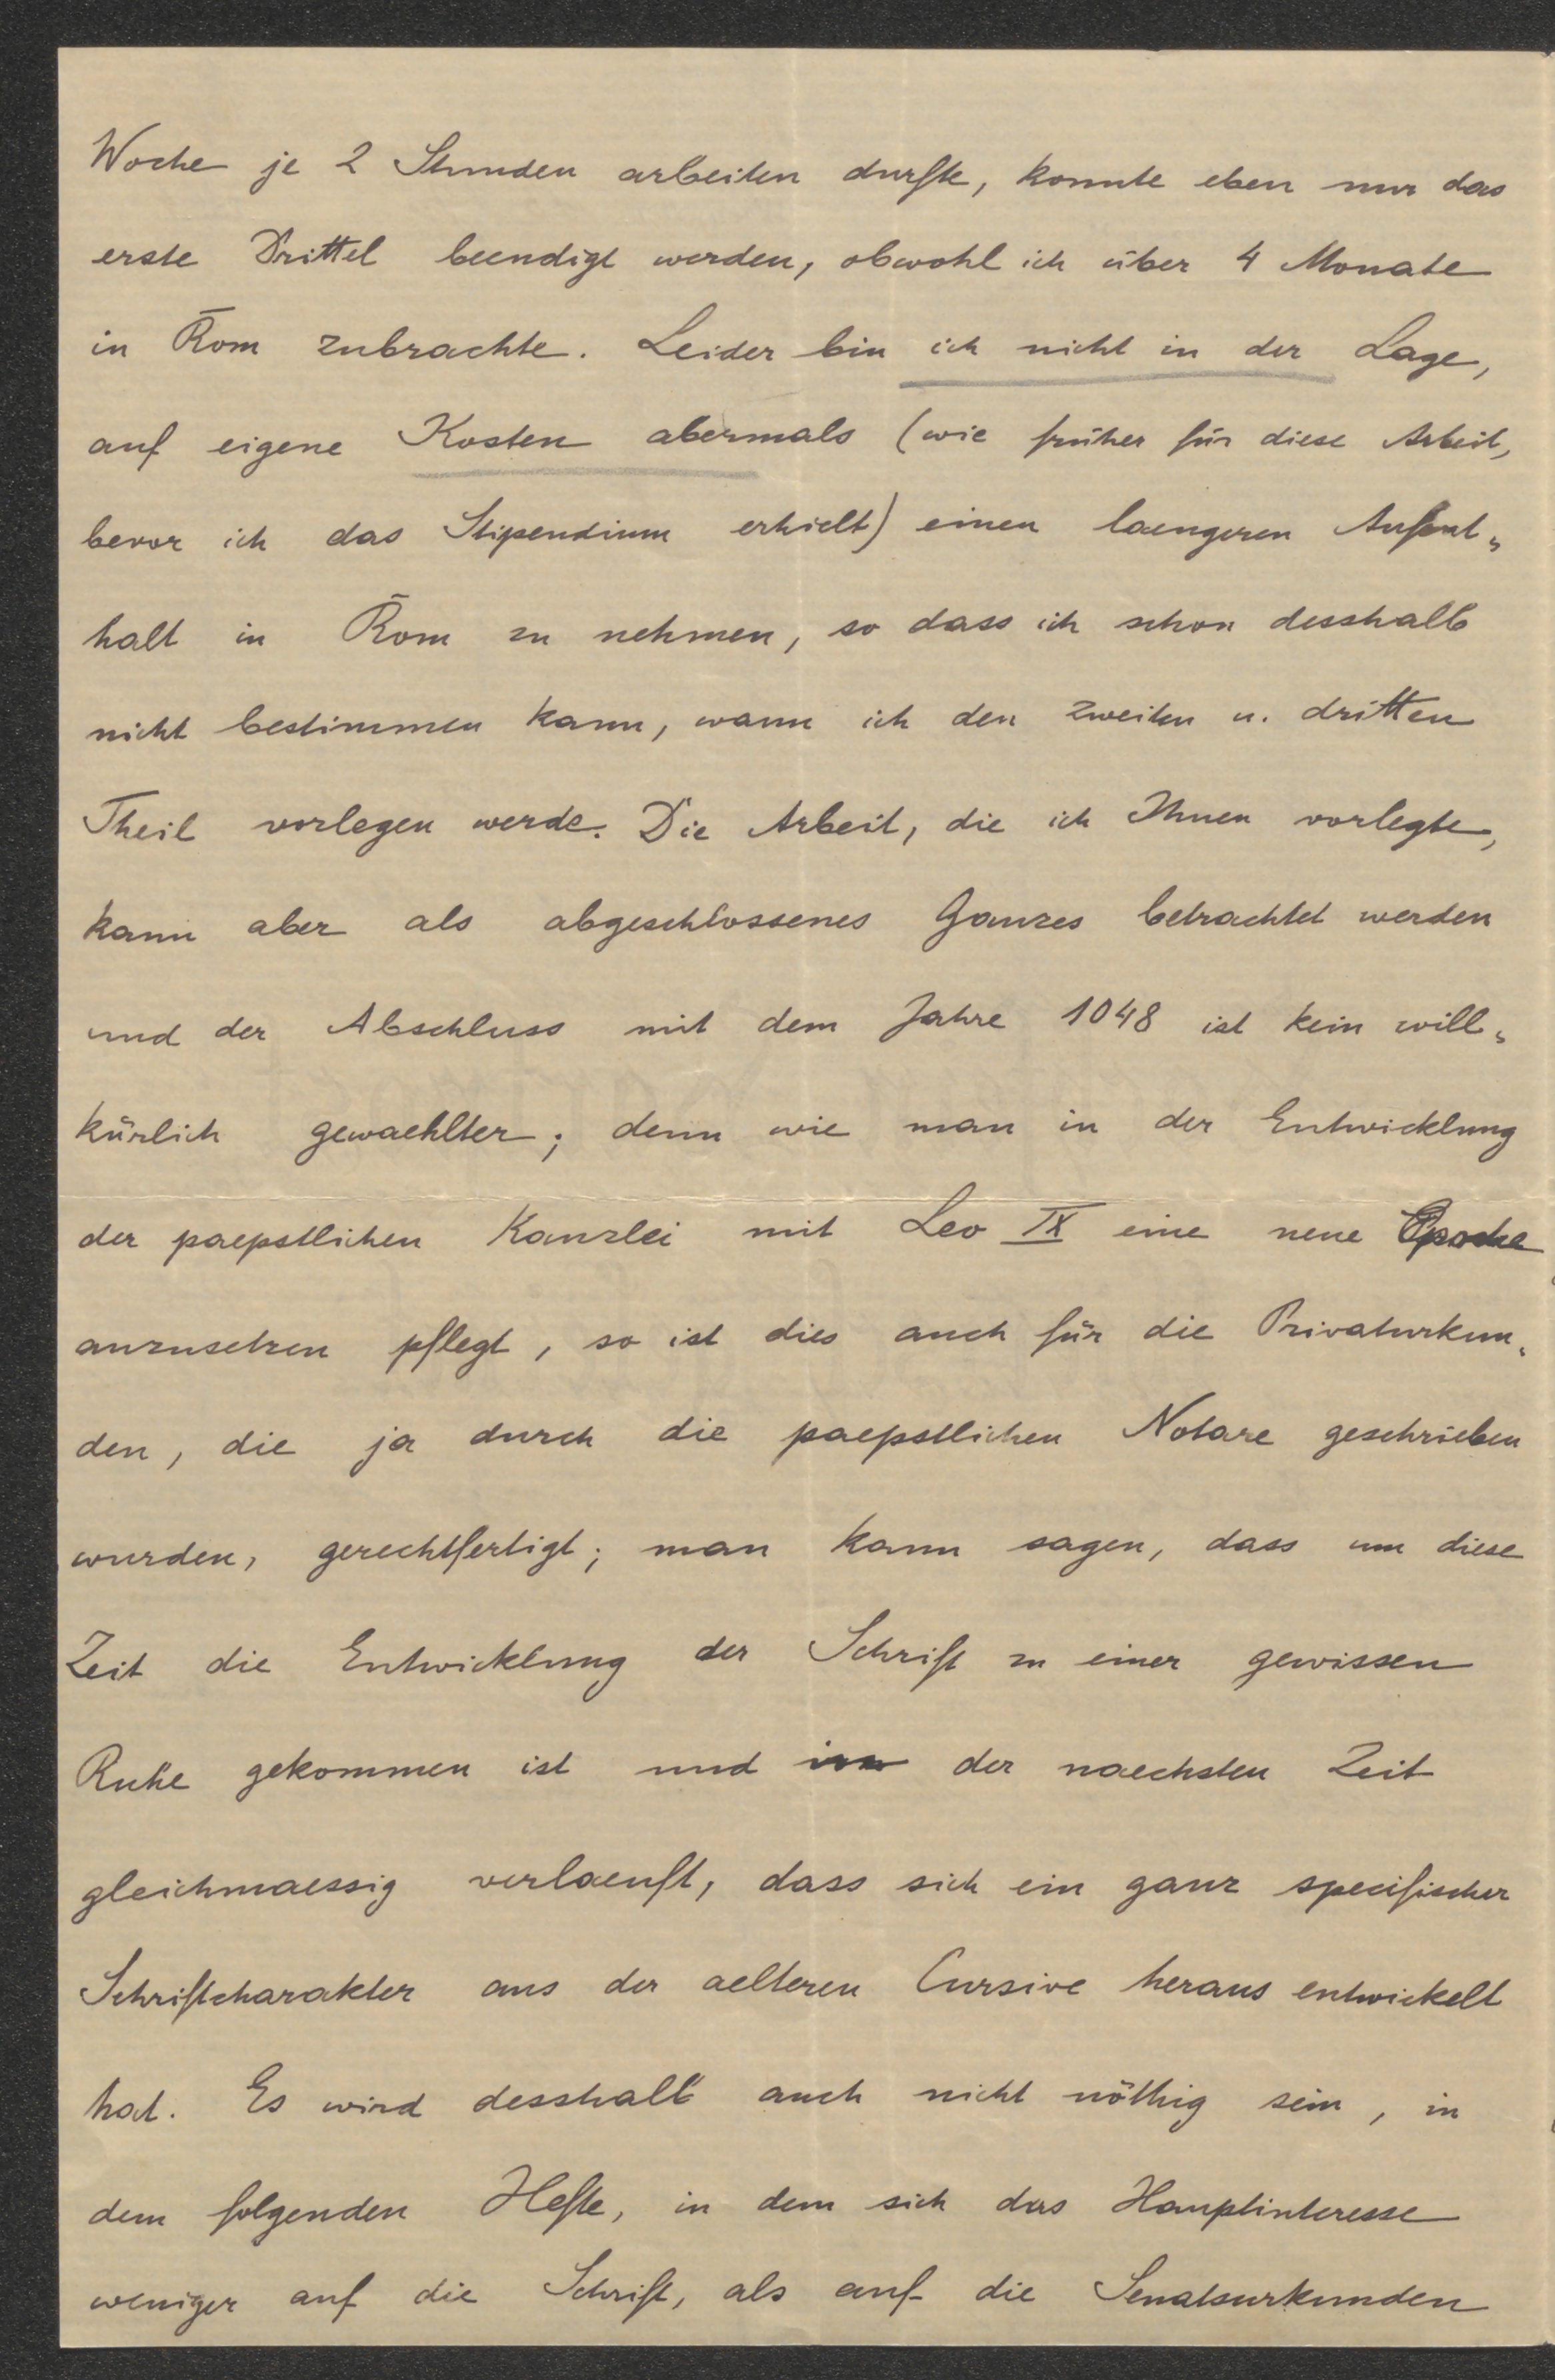 Woche je 2 Stunden arbeiten durfte, konnte eben nur das
erste Drittel beendigt werden, obwohl ich über 4 Monate
in Rom zubrachte. Leider bin ich nicht in der Lage,
auf eigene Kosten abermals (wie früher für diese Arbeit,
bevor ich das Stipendium erhielt) einen laengeren Aufent„
halt in Rom zu nehmen, so dass ich schon desshalb
nicht bestimmen kann, wann ich den zweiten u. dritten
Theil vorlegen werde. Die Arbeit, die ich Ihnen vorlegte,
kann aber als abgeschlossenes Ganzes betrachtet werden
und der Abschluss mit dem Jahre 1048 ist kein will„
kürlich gewaehlter; denn wie man in der Entwicklung
der paepstlichen Kanzlei mit Leo IX eine neue Epoche
anzusetzen pflegt, so ist dies auch für die Privaturkun„
den, die ja durch die paepstlichen Notare geschrieben
wurden, gerechtfertigt; man kann sagen, dass um diese
Zeit die Entwicklung der Schrift zu einer gewissen
Ruhe gekommen ist und in der naechsten Zeit
gleichmaessig verlaeuft, dass sich ein ganz specifischer
Schriftcharakter aus der aelteren Cursive heraus entwickelt
hat. Es wird desshalb auch nicht nöthig sein, in
dem folgenden Hefte, in dem sich das Hauptinteresse
weniger auf die Schrift, als auf die Senatsurkunden